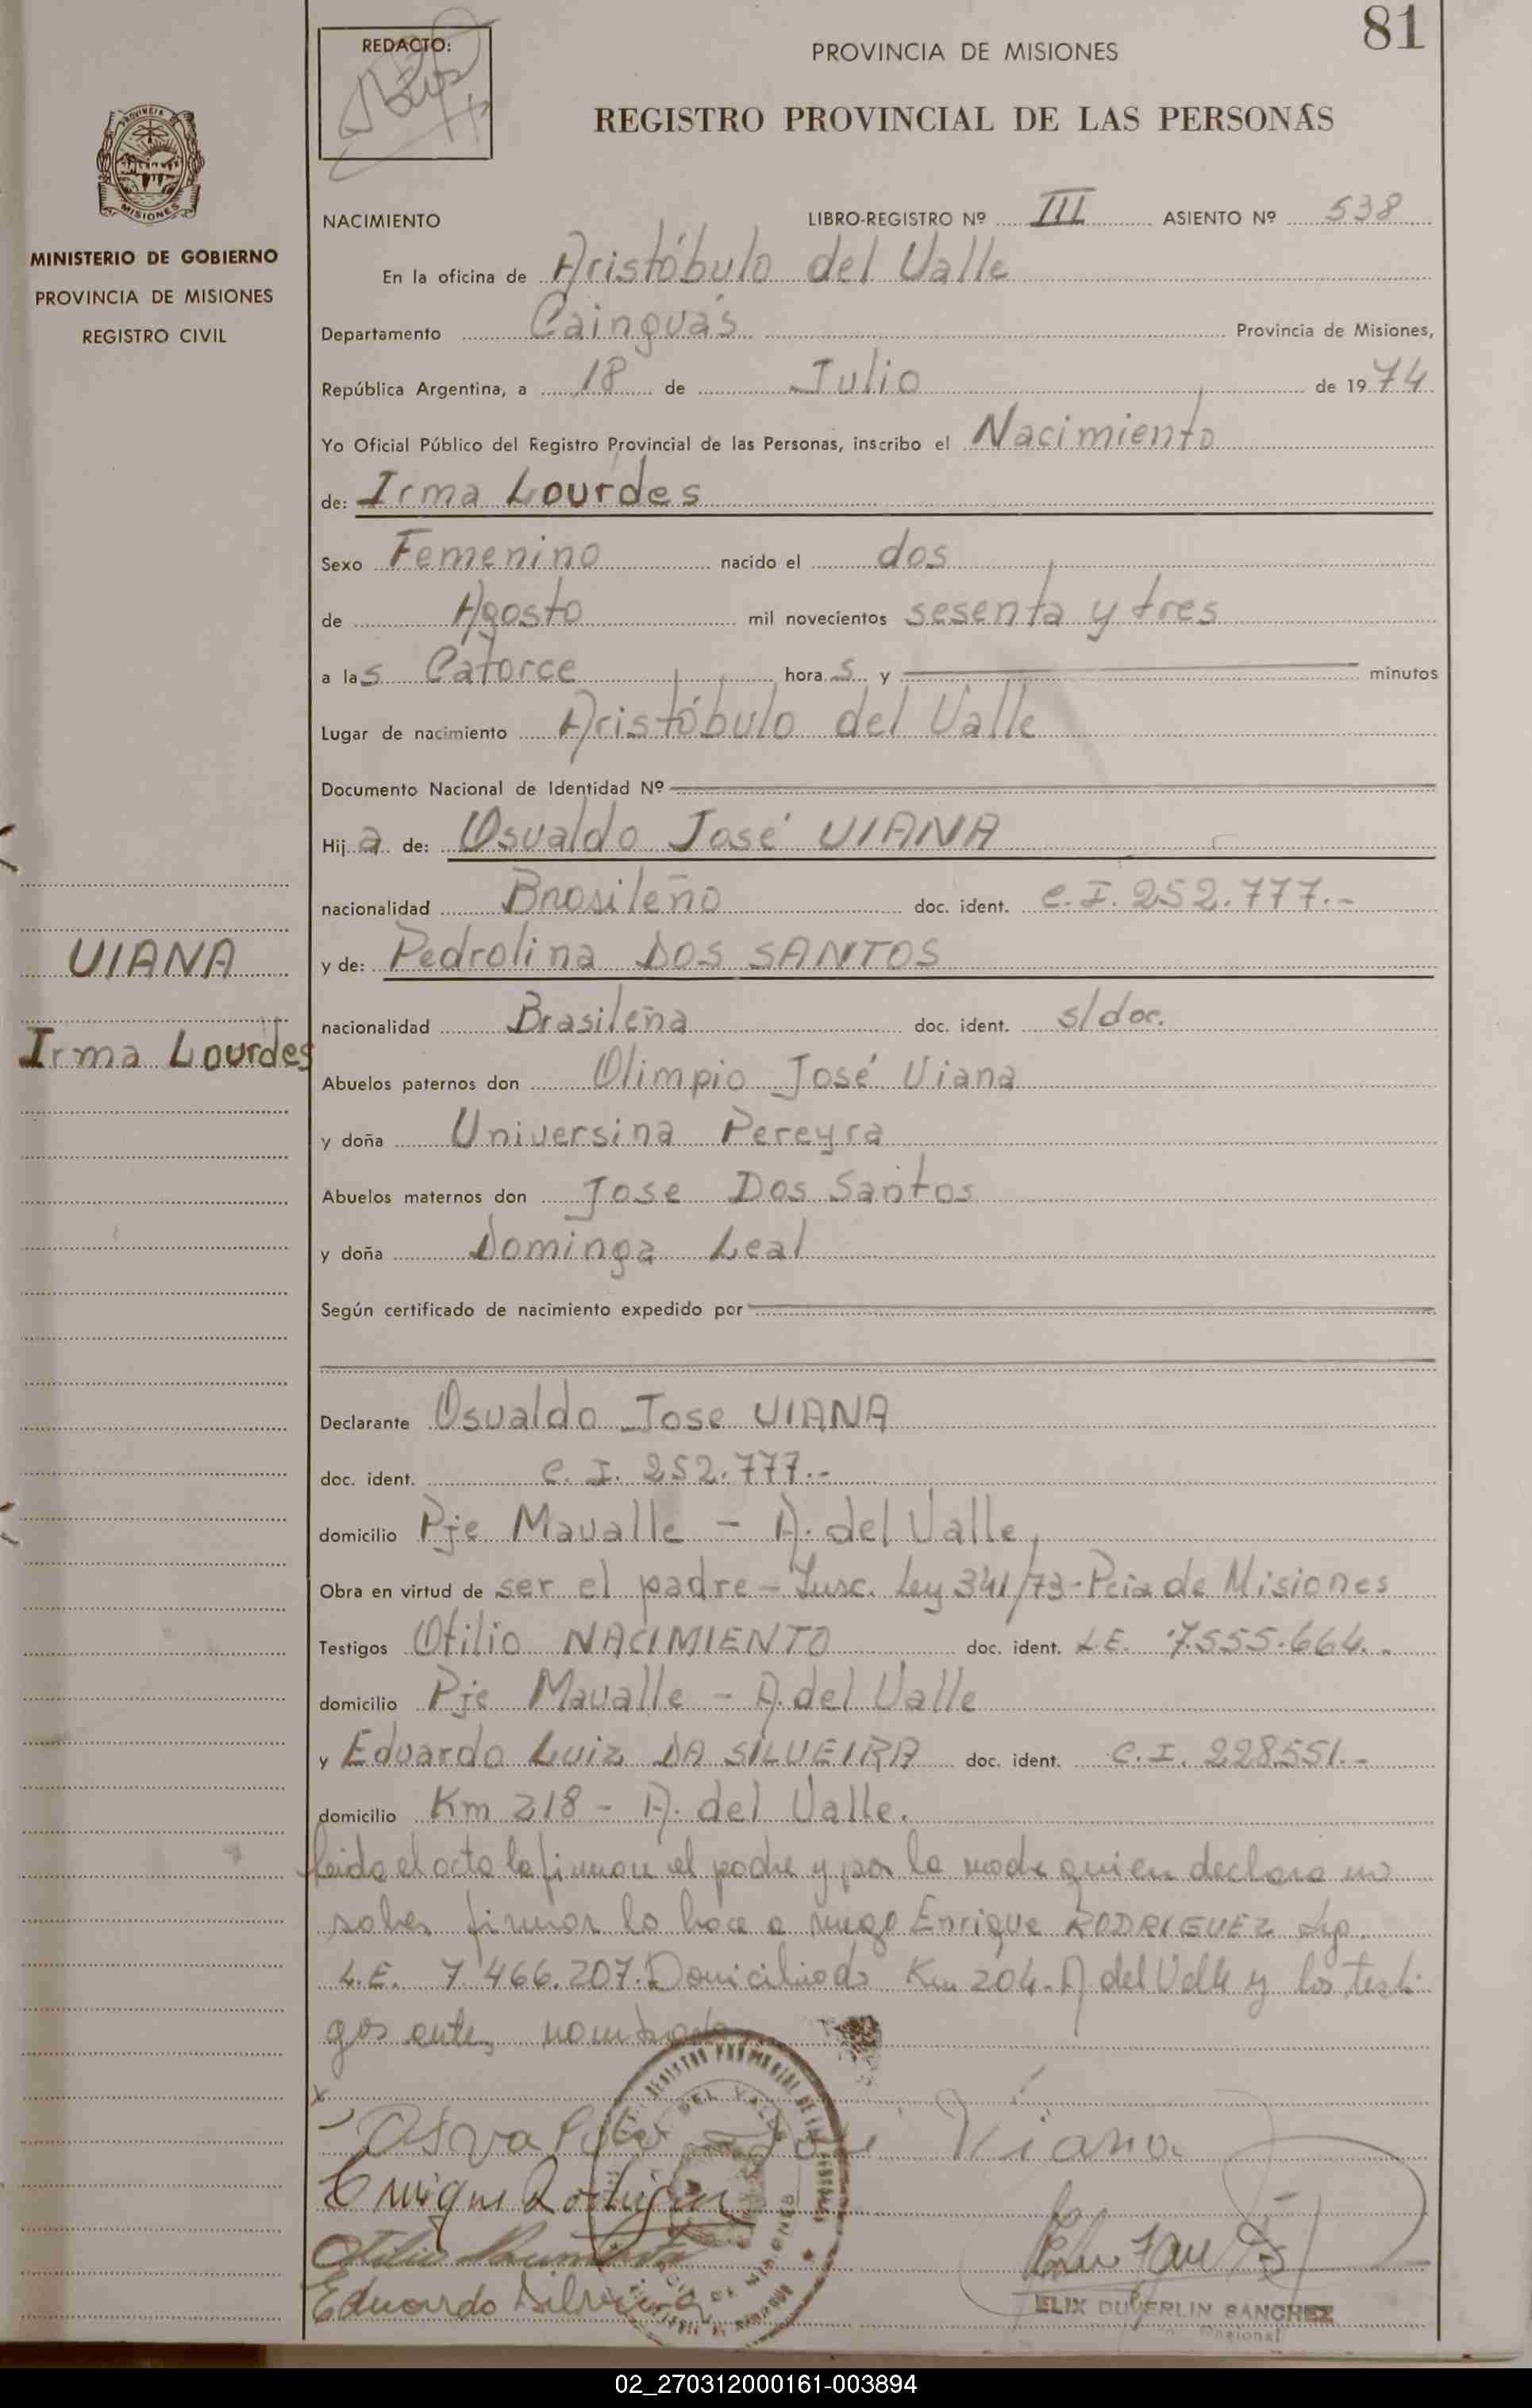 81
REDACTO:
PROVINCIA DE MISIONES
REGISTRO PROVINCIAL DE LAS PERSONAS
MISIONES
MINISTERIO DE GOBIERNO
PROVINCIA DE MISIONES
REGISTRO CIVIL
NACIMIENTO LIBRO-REGISTRO Nº III ASIENTO Nº 538
En la oficina de Aristóbulo del Valle
Departamento Cainguás Provincia de Misiones,
República Argentina, a 18 de Julio de 1974
Yo Oficial Público del Registro Provincial de las Personas, inscribo el Nacimiento
de: Irma Lourdes
Sexo Femenino nacido el dos
de Agosto mil novecientos sesenta y tres
a las Catorce horas y minutos
Lugar de nacimiento Aristóbulo del Valle
Documento Nacional de Identidad Nº
Hija de: Osvaldo José VIANA
nacionalidad Brasileño doc. ident. C.I. 252.777.-
VIANA
y de: Pedrolina DOS SANTOS
nacionalidad Brasileña doc. ident. s/doc.
Irma Lourdes
Abuelos paternos don Olimpio José Viana
y doña Universina Pereyra
Abuelos maternos don Jose Dos Santos
y doña Dominga Leal
Según certificado de nacimiento expedido por
Declarante Osvaldo Jose VIANA
doc. ident. C.I. 252.777.-
domicilio Pje Mavalle - A. del Valle,
Obra en virtud de ser el padre - Insc. Ley 341/73-Pcia de Misiones
Testigos Otilio NACIMIENTO doc. ident. L.E. 7.555.664.-
domicilio Pje Mavalle - A. del Valle
y Eduardo Luiz DA SILVEIRA doc. ident. C.I. 228.551.-
domicilio Km 218 - A. del Valle.
leida el acta la firman el padre y por la madre quien declara no
saber firmar lo hace a ruego Enrique RODRIGUEZ
L.E. 7.466.207. Domiciliado Km 204- A del Valle y los testi-
gos antes nombrados
Osvaldo José Viana
Enrique Rodriguez
Otilio
Eduardo Silveira
ELIX DUVERLIN SANCHEZ
02_270312000161-003894